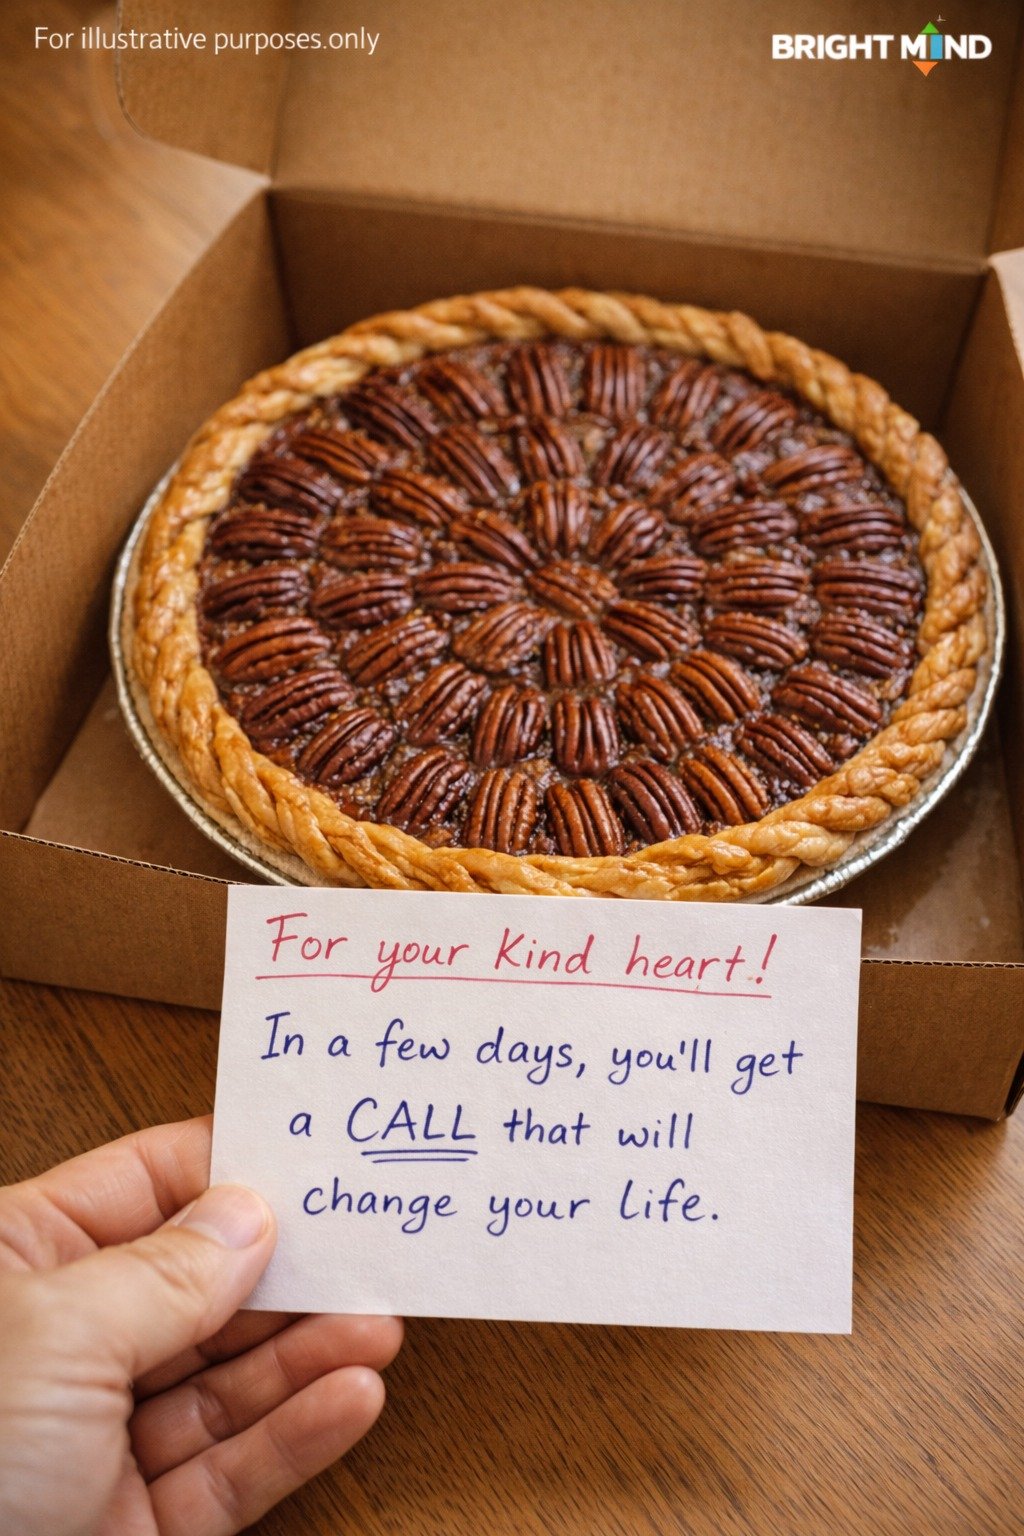 For illustrative purposes.only
BRIGHT MIND
For your kind heart!
In a few days, you'll get
a CALL that will
change your life.